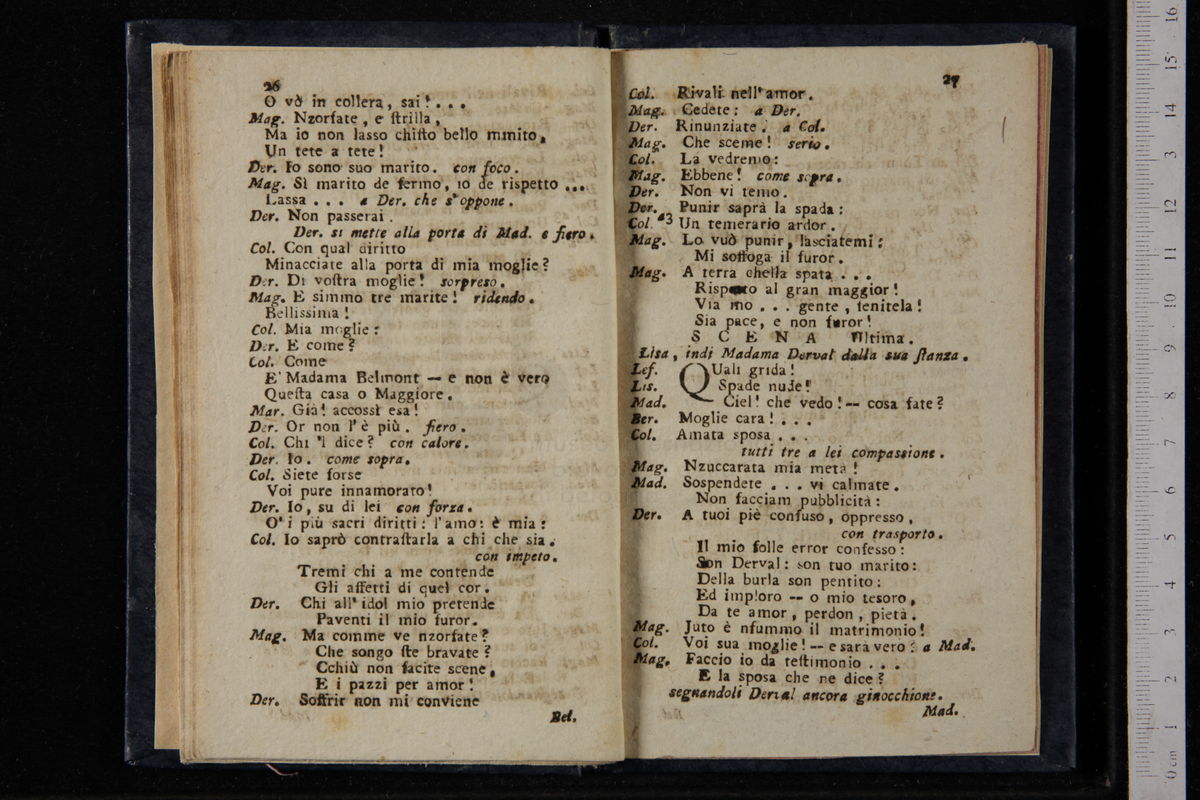 26
O vò in collera, sai! . . .
Mag. Nzorfate, e ſtrilla,
Ma io non lasso chiſto bello mmito,
Un tete a tete!
Der. Io sono suo marito. con foco.
Mag. Sì marito de fermo, io de rispetto ...
Lassa . . . a Der. che s'oppone.
Der. Non passerai.
Der. si mette alla porta di Mad. e fiero.
Col. Con qual diritto
Minacciate alla porta di mia moglie?
Der. Di voſtra moglie! sorpreso.
Mag. E simmo tre marite! ridendo.
Bellissima!
Col. Mia moglie:
Der. E come?
Col. Come
E' Madama Belmont — e non è vero
Queſta casa o Maggiore.
Mar. Già! accossì esa!
Der. Or non l'è più. fiero.
Col. Chi 'l dice? con calore.
Der. Io. come sopra.
Col. Siete forse
Voi pure innamorato!
Der. Io, su di lei con forza.
O' i più sacri diritti: l'amo: è mia:
Col. Io saprò contraſtarla a chi che sia.
con impeto.
Tremi chi a me contende
Gli affetti di quel cor.
Der. Chi all'idol mio pretende
Paventi il mio furor.
Mag. Ma comme ve nzorfate?
Che songo ſte bravate?
Cchiù non facite scene,
E i pazzi per amor!
Der. Soffrir non mi conviene
Bel.
27
Col. Rivali nell'amor.
Mag. Cedete: a Der.
Der. Rinunziate. a Col.
Mag. Che sceme! serio.
Col. La vedremo:
Mag. Ebbene! come sopra.
Der. Non vi temo.
Der. Punir saprà la spada:
Col. a3 Un temerario ardor.
Mag. Lo vuò punir, lasciatemi:
Mi soffoga il furor.
Mag. A terra chella spata . . .
Rispetto al gran maggior!
Via mo . . . gente, tenitela!
Sia pace, e non furor!
SCENA Ultima.
Lisa, indi Madama Derval dalla sua ſtanza.
Lef. QUali grida!
Lis. Spade nude!
Mad. Ciel! che vedo! — cosa fate?
Ber. Moglie cara! . . .
Col. Amata sposa . . .
tutti tre a lei compassione.
Mag. Nzuccarata mia metà!
Mad. Sospendete . . . vi calmate.
Non facciam pubblicità:
Der. A tuoi piè confuso, oppresso,
con trasporto.
Il mio folle error confesso:
Son Derval: son tuo marito:
Della burla son pentito:
Ed imploro — o mio tesoro,
Da te amor, perdon, pietà.
Mag. Juto è nfummo il matrimonio!
Col. Voi sua moglie! — e sarà vero: a Mad.
Mag. Faccio io da teſtimonio . . .
E la sposa che ne dice?
segnandoli Derval ancora ginocchione.
Mad.
0 cm 1 2 3 4 5 6 7 8 9 10 11 12 13 14 15 16